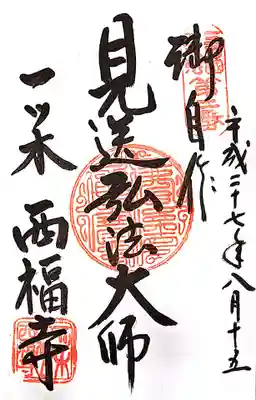 平成二十七年八月十五
御自作
見送弘法大師
一之木 西福寺